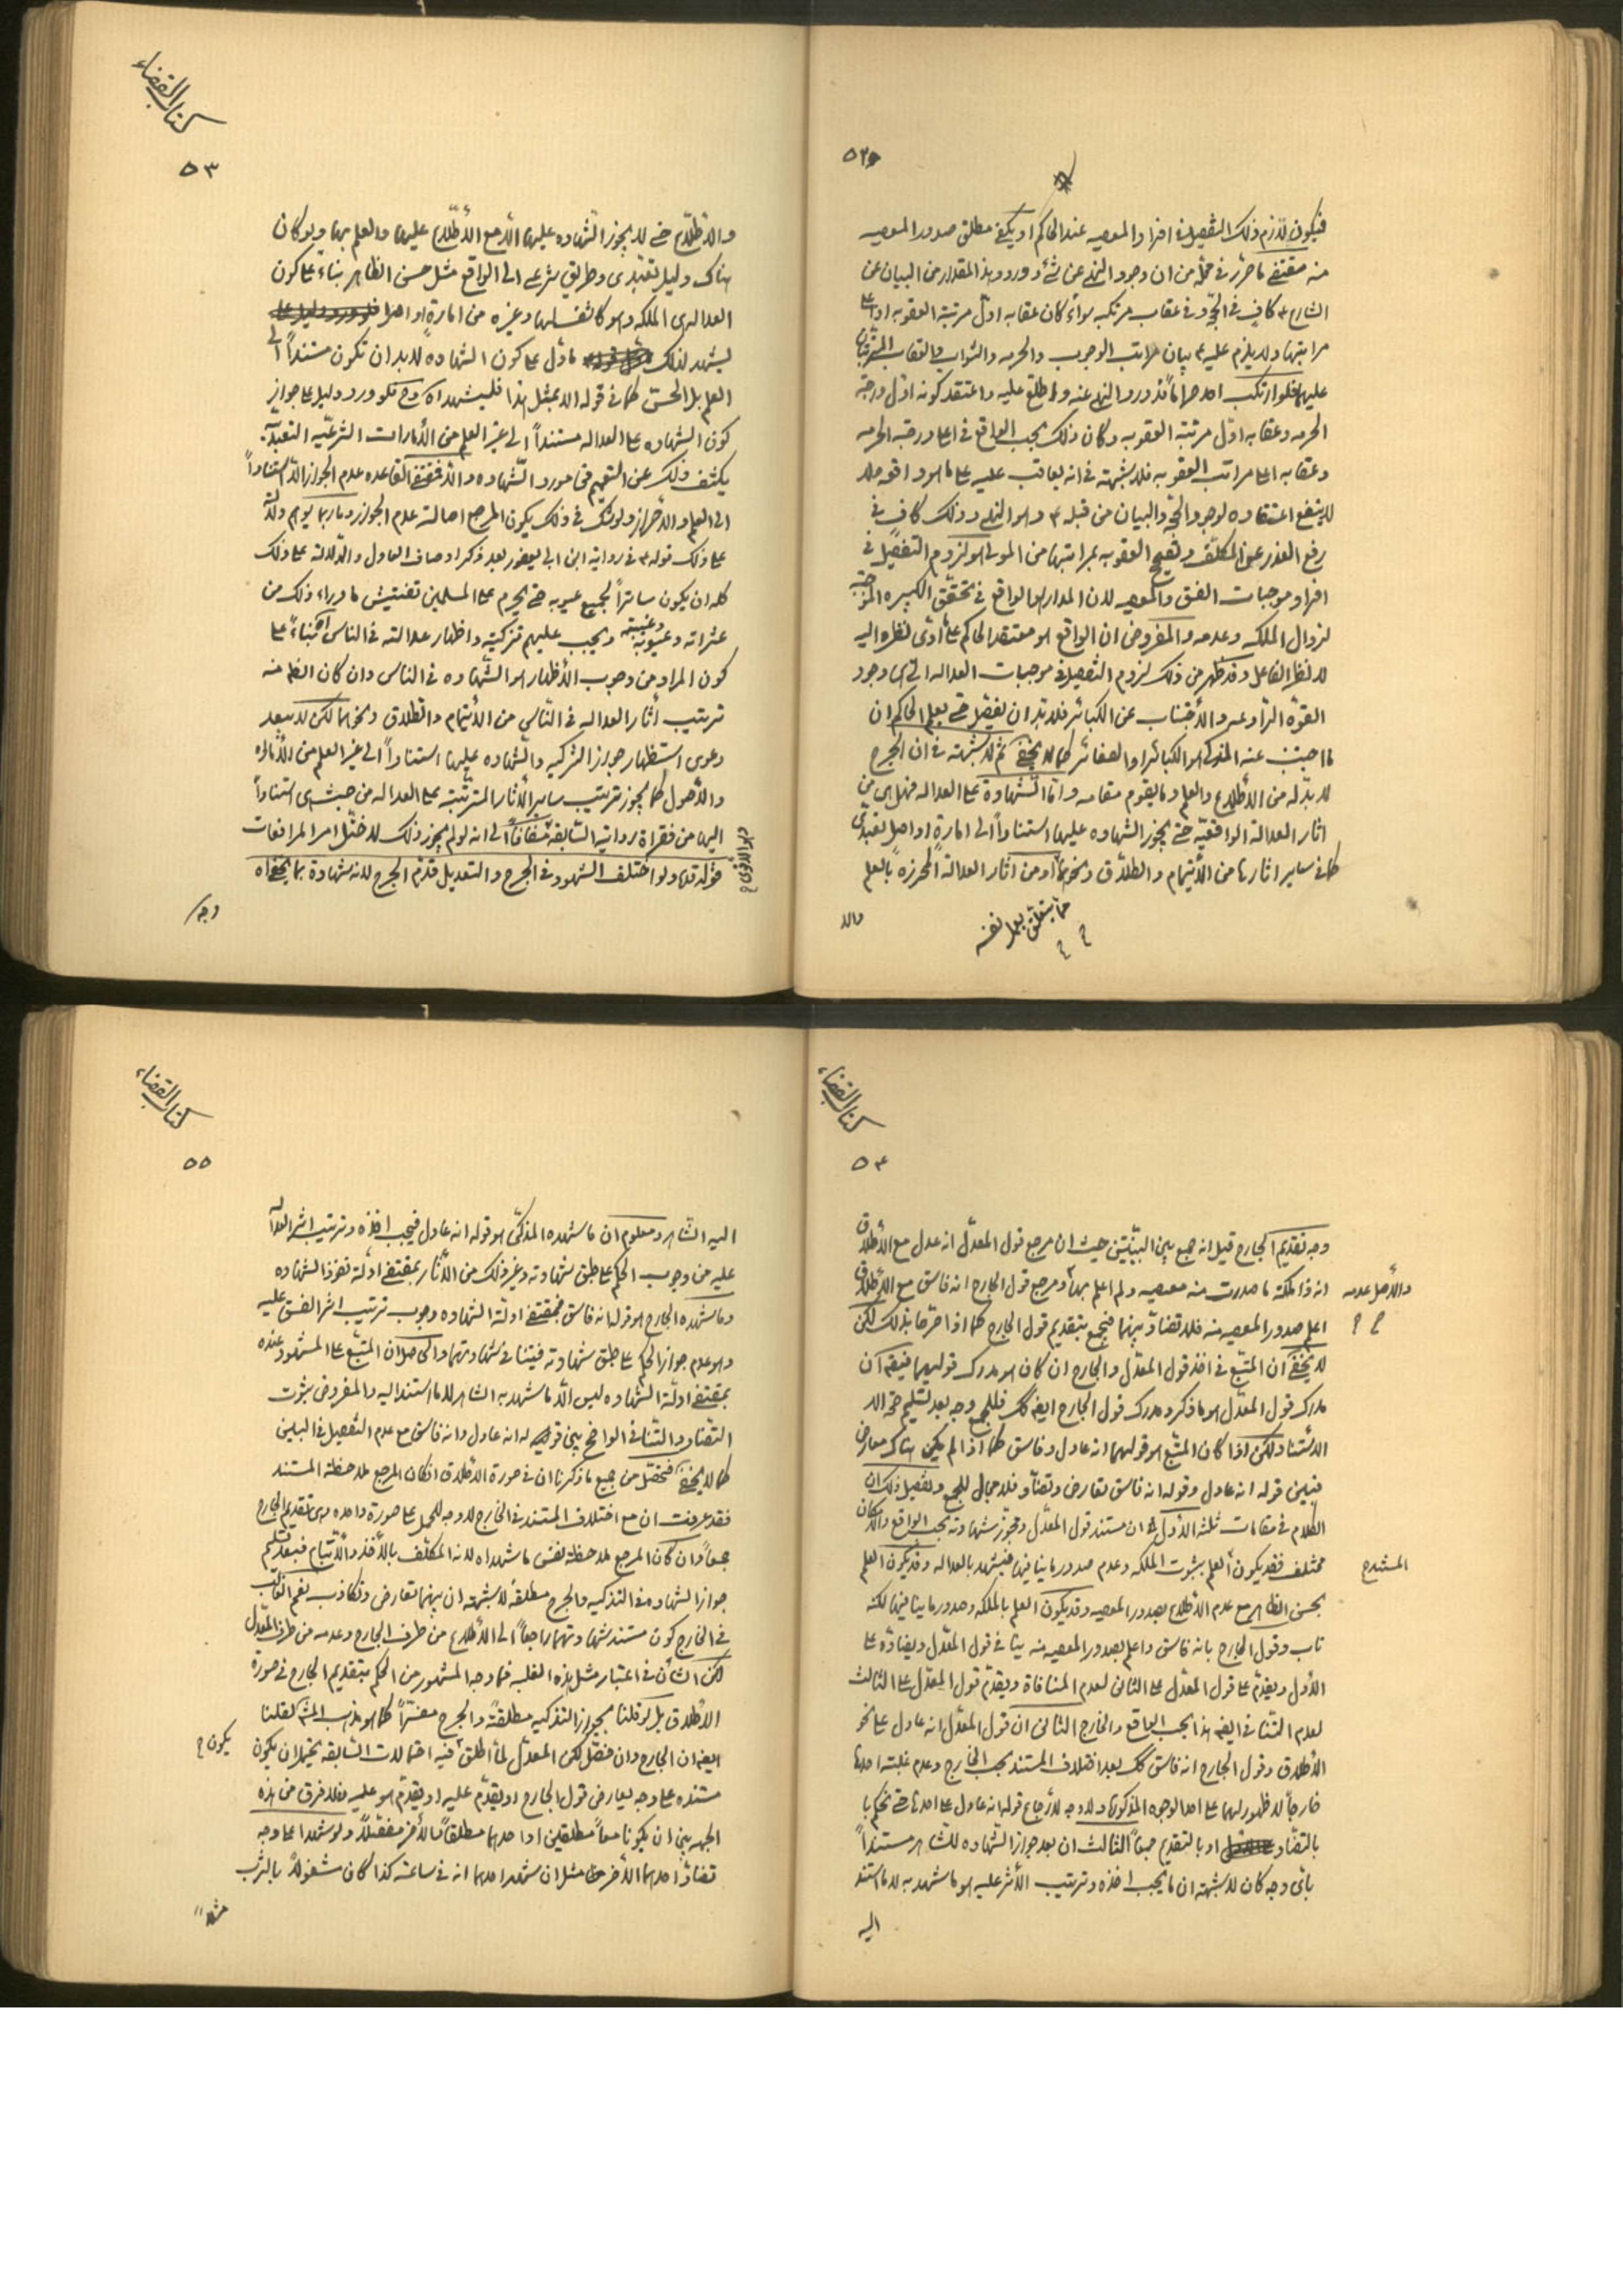 ٥٢
فيكون اللازم ذلك التفصيل في افراد المعصيه عند الحاكم او يكفى مطلق صدور المعصيه
منه مقتضى ما حرّر في محلّه من ان وجود النهى عن شئ و ورود هذا المقدار من البيان عن
الشارع ع كافٍ في الحجّه و في عقاب مرتكبه سواء كان عقابه اوّل مرتبة العقوبه او اعلى
مراتبها ولا يلزم عليه ع بيان مراتب الوجوب والحرمه والثواب والعقاب المترتّبان
عليهما فلو ارتكب احد حراماً قد ورد النهى عنه و اطلع عليه واعتقد كونه اوّل درجة
الحرمه وعقابه اوّل مرتبة العقوبه وكان ذلك بحسب الواقع في اعلى درجة الحرمه
وعقابه اعلى مراتب العقوبه فلا شبهة في انه يعاقب عليه على ما هو واقعه ولا
ينفع اعتقاده لوجود الحجّه والبيان من قبله ع وهو النهى و ذلك كافٍ في
رفع العذر عن المكلّف وتصحيح العقوبه بمراتبها من المولى هو لزوم التفصيل في
افراد موجبات الفسق والمعصيه لان المدار هو الواقع في تحقّق الكبيره الموجبة
لزوال الملكه وعدمه والمفروض ان الواقع هو معتقد الحاكم على ما ادّى نظره اليه
لا نظر الفاعل وقد ظهر من ذلك لزوم التفصيل في موجبات العداله التى هى وجود
القوّة الرّادعه والاجتناب عن الكبائر فلا بدّ ان يفصّل حتى يعلم الحاكم ان
ما اجتنب عنه المزكى هو الكبائر او الصغائر كما لا يخفى ثم لا شبهة في ان الجرح
لا بدّ له من الاطلاع والعلم و ما يقوم مقامه وامّا الشهادة على العداله فهل هى من
اثار العدالة الواقعيّه حتى يجوز الشهاده عليها استناداً الى امارة او اصل تعبّدى
كما في ساير اثارها من الأيتمام والطلاق ونحوهما او من اثار العدالة المحرزه بالعلم
ممّا يتعلق بعمل نفسه
والا
كتاب القضاء
٥٣
والاطّلاع حتى لا يجوز الشهاده عليها الّا مع الاطّلاع عليها والعلم بها ولو كان
هناك دليل تعبّدى وطريق شرعى الى الواقع مثل حسن الظاهر بناء على كون
العداله هى الملكه وهو كاشف لها وغيره من امارةٍ او اصل
يشهد لذلك ما دلّ على كون الشهادة لا بد ان تكون مستنداً الى
العلم بل الحسّ كما في قوله الا بمثل هذا فليشهد اه وح فلو ورد دليل على جواز
كون الشهاده على العداله مستنداً الى غير العلم من الأمارات الشرعيّه التعبديّه
يكشف ذلك عن التعميم في مورد الشهاده والّا فمقتضى القاعده عدم الجواز الّا استناداً
الى العلم والاحراز ولو شك في ذلك يكون المرجع اصالة عدم الجواز وربما يوهم دلالة
على ذلك قوله ع في رواية ابن ابى يعفور بعد ذكر اوصاف العادل والدّلالة على ذلك
كله ان يكون ساتراً لجميع عيوبه حتى يحرم على المسلمين تفتيش ما وراء ذلك من
عثراته وعيوبه وغيبته ويجب عليهم تزكيته واظهار عدالته في الناس اه بناءً على
كون المراد من وجوب الأظهار هو الشهاده في الناس وان كان الظ منه
ترتيب اثار العداله في النّاس من الأيتمام والطلاق ونحوهما لكن لا يبعد
دعوى استظهار جواز التزكيه والشهاده عليها استناداً الى غير العلم من الأماره
والأصول كما يجوز ترتيب ساير الأثار المترتّبه على العداله من حيث هى استناداً
اليها من فقراة رواية السّابقه مضافاً الى انه لو لم يجوز ذلك لاختلّ امر المرافعات
قوله قده ولو اختلف الشهود في الجرح والتعديل قدّم الجرح لانه شهادة بما يخفى اه
وجه
كتاب القضاء
٥٤
وجه تقديم الجارح قيل انه جمع بين البيّنتين حيث ان مرجع قول المعدّل انه عدل مع الأطلاق
انه ذا ملكة ما صدرت منه معصيه ولم اعلم بها و مرجع قول الجارح انه فاسق مع الأطلاق
والأصل عدمه
اعلم صدور المعصيه منه فلا تضادّ بينهما فيجمع بتقديم قول الجارح كما اذا صرّحا بذلك لكن
لا يخفى ان المتّبع في اخذ قول المعدّل والجارح ان كان هو مدرك قوليهما فيقه ان
مدرك قول المعدّل هو ما ذكر ومدرك قول الجارح ايضه كك فللجمع وجه بعد تسليم صحة
الاستناد لكن اذا كان المتّبع هو قوليهما انه عادل وفاسق كما اذا لم يكن هناك معارض
فبين قوله انه عادل وقوله انه فاسق تعارض وتضادّ فلا مجال للجمع وتفصيل ذلك ان
الكلام في مقامات ثلثه الأول في ان مستند قول المعدّل وتجوز شهادته بحسب الواقع والأمكان
مختلف فقد يكون العلم بثبوت الملكه وعدم صدور ما ينافيها فيشهد بالعداله وقد يكون العلم
المستند ح
بحسن الظاهر مع عدم الاطلاع بصدور المعصيه وقد يكون العلم بالملكه وصدور ما ينافيها لكنه
تاب وقول الجارح بانه فاسق واعلم بصدور المعصيه منه ينافى قول المعدّل ويضادّه على
الأول ويقدّم على قول المعدّل على الثانى لعدم المنافاة ويقدّم قول المعدّل على الثالث
لعدم التّنافى ايضه هذا بحسب الواقع والخارج الثانى ان قول المعدّل انه عادل على نحو
الأطلاق وقول الجارح انه فاسق كك بعد اختلاف المستند بحسب الخارج وعدم غلبة احدها
خارجاً لا ظهور لهما على احد الوجوه المذكوره ولا وجه لأرجاع قوله انه عادل على احدها حتى نحكم با
بالتضّاد او بالتقديم جمعاً الثالث ان بعد جواز الشهاده للشاهد مستنداً
بأىّ وجه كان لا شبهة ان ما يجب اخذه وترتيب الأثر عليه هو ما شهد به لا ما استند
اليه
كتاب القضاء
٥٥
اليه الشاهد ومعلوم ان ما شهده المزكّى هو قوله انه عادل فيجب اخذه وترتيب اثر العداله
عليه من وجوب الحكم على طبق شهادته وغير ذلك من الأثار بمقتضى ادلة نفوذ الشهاده
وما شهده الجارح هو قوله انه فاسق فمقتضى ادلة الشهاده وجوب ترتيب اثر الفسق عليه
وهو عدم جواز الحكم على طبق شهادته فيتنافى شهادتهما والحاصل ان المتّبع على المشهود عنده
بمقتضى ادلّة الشهاده ليس الّا ما شهد به الشاهد لا ما استند اليه والمفروض ثبوت
التضّاد والتّنافى الواضح بين قوله انه عادل وانه فاسق مع عدم التفصيل في البين
كما لا يخفى فتحصّل من جميع ما ذكرنا ان في صورة الأطلاق ان كان المرجع ملاحظة المستند
فقد عرفت ان مع اختلاف المستند في الخارج لا وجه للحمل على صورة واحده هى تقديم الجارح
جمعاً وان كان المرجع ملاحظة نفس ما شهد اه لانه المكلّف بالأخذ والأتّباع فبعد تسليم
جواز الشهاده في التزكيه والجرح مطلقه لا شبهة ان بينهما تعارض وتكاذب نعم الغالب
في الخارج كون مستند شهادتهما راجعاً الى الأطلاع من طرف الجارح وعدمه من طرف المعدّل
لكن الشأن في اعتبار مثل هذه الغلبه فما وجه المشهور من الحكم بتقديم الجارح في صورة
الأطلاق بل لو قلنا بجواز التزكيه مطلقةً والجرح مفسّراً كما هو مذهب المش لقلنا
ايضه ان الجارح وان فصّل لكن المعدّل لمّا اطلق ففيه احتمالات السّابقه يحتمل ان يكون
يكون ح
مستنده على وجه يعارض قول الجارح او يقدّم عليه او يقدّم هو عليه فلا فرق من هذه
الجهه بين ان يكونا معاً مطلقين او احدهما مطلقاً والأخر مفصّلاً ولو شهدا على وجه
تضادّ احدهما الأخر مثل ان شهد احدهما انه في ساعة كذا كان مشغولاً بالشرب
مثلا